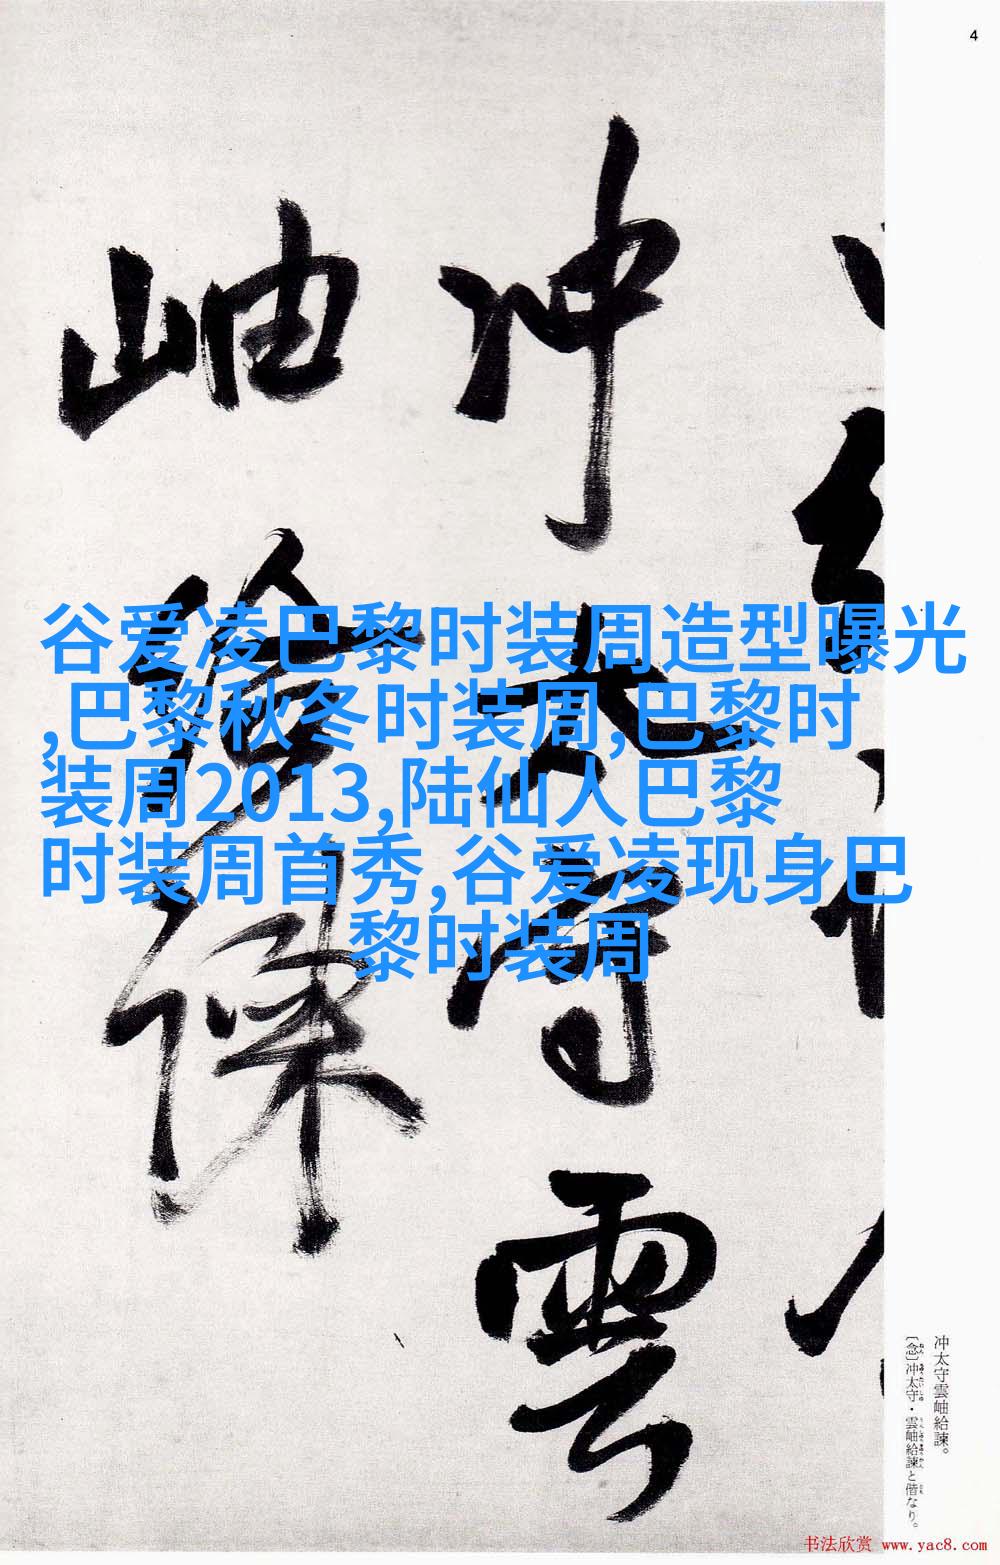 4
冲太守雲
岫給諫
谷爱凌巴黎时装周造型曝光
,巴黎秋冬时装周,巴黎时
装周2013,陆仙人巴黎
时装周首秀,谷爱凌现身巴
黎时装周
冲太守雲岫給諫。
〔念〕冲太守・雲岫給諫と偕なり。
书法欣赏 www.yac8.com